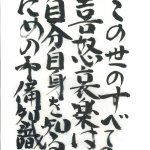 この世のすべての
喜怒哀楽は
自分自身を知る
ための予備知識